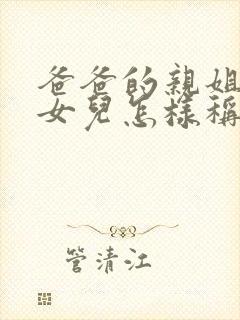 爸爸的親姐
女兒怎樣稱
管清江